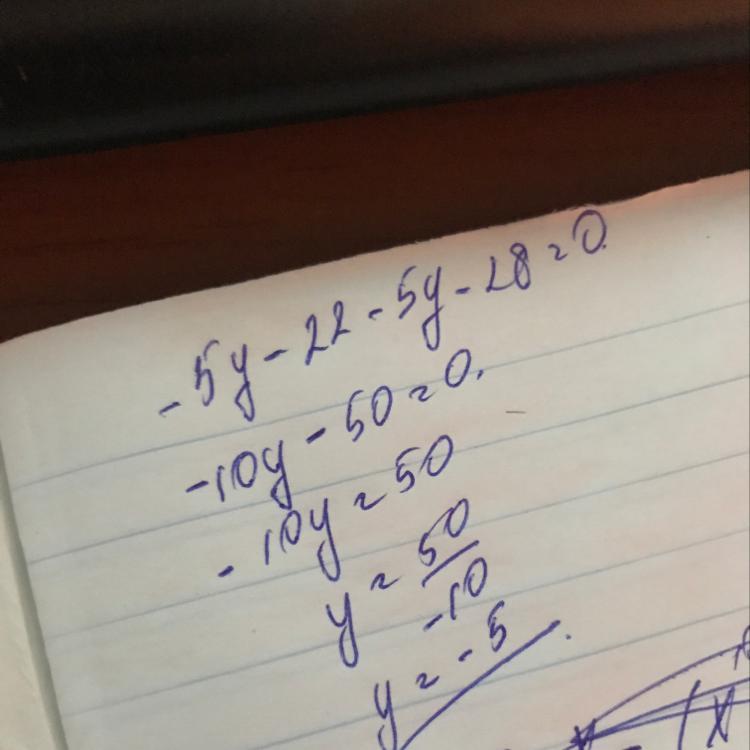 -5y - 22 - 5y - 28 = 0.
-10y - 50 = 0.
-10y = 50
y = 50/-10
y = -5